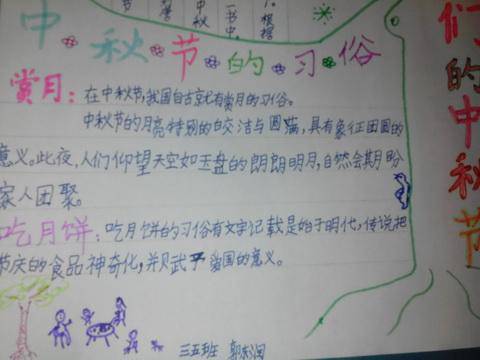 中秋节的习俗
赏月：在中秋节，我国自古就有赏月的习俗。
中秋节的月亮特别的皎洁与圆满，具有象征团圆的
意义。此夜，人们仰望天空如玉盘的朗朗明月，自然会期盼
家人团聚。
吃月饼：吃月饼的习俗有文字记载是始于明代，传说把
节庆的食品神奇化，并贝武予爱国的意义。
三五班
们的中秋节
根据
书中
中秋